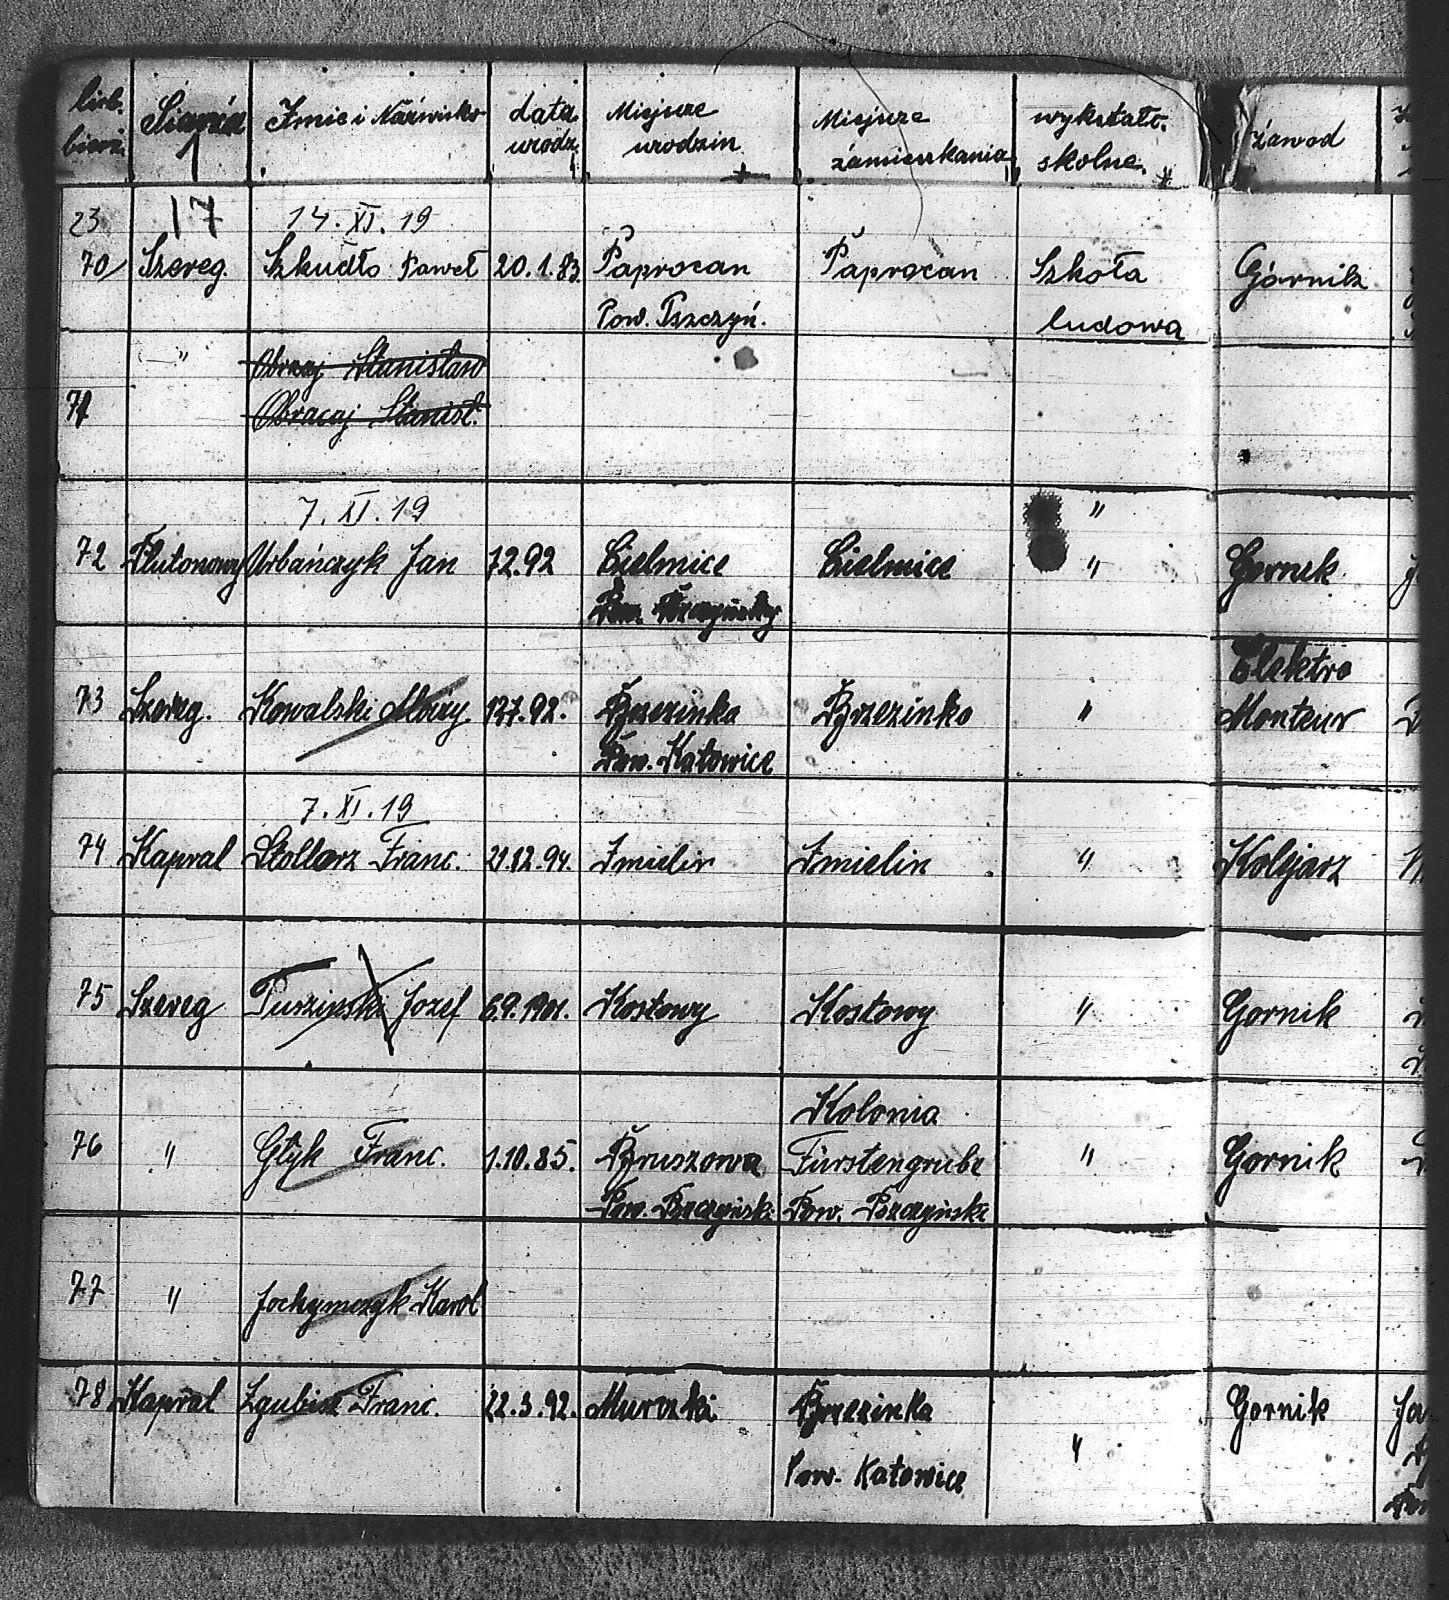 licb. bierz. Imie i Naźwisko data urodz. Miejsce urodzin Miejsce źamieszkania wykształc. skolne. źawod
23 17 14. XI. 19
70 Szereg. Szkudło Paweł 20.1.83. Paprocan Paprocan Szkoła Górnik
Pow. Pszczyń. ludowa
" Obracaj Stanisław
71 Obracaj Stanisł.
7. XI. 19 "
72 Plutonowy Urbańczyk Jan 7.2.92 Cielmice Cielmice " Gornik
Pow. Pszczyński
Elektro
73 Szereg. Kowalski 12.7.92. Brzezinka Brzezinka " Monteur
Pow. Katowice
7. XI. 19
74 Kapral Stollarz Franc. 21.12.94. Imielin Imielin " Kolejarz
75 Szereg Tuszinski Jozef 6.9.1901. Kostowy Kostowy " Gornik
Kolonia
76 " Glyk Franc. 1.10.85. Bruszowa Fürstengrube " Gornik
Pow. Pszczyńsk. Pow. Pszczyńsk.
77 " Jochymczyk Karol
78 Kapral Franc. 22.3.92. Murcki Brzezinka Gornik
Pow. Katowice "